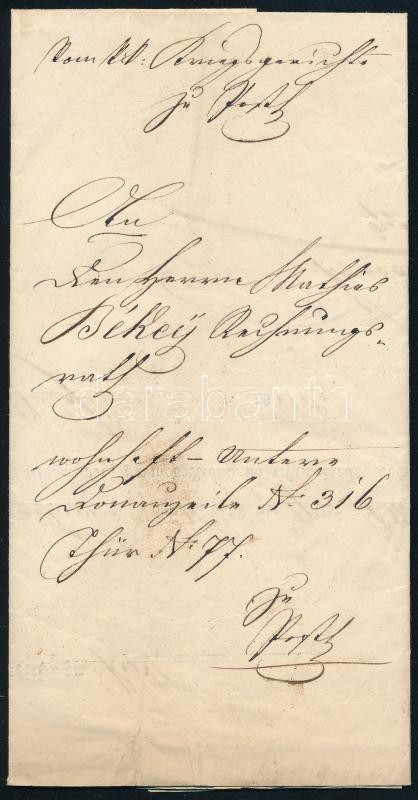 Vom k.k. Kriegsgerichte
zu Pesth
An
den Herrn Mathias
Békey Rechnungs-
rath
wohnhaft – Untere
Donauzeile No. 316
Thür No. 77.
Zu
Pesth
darabanth